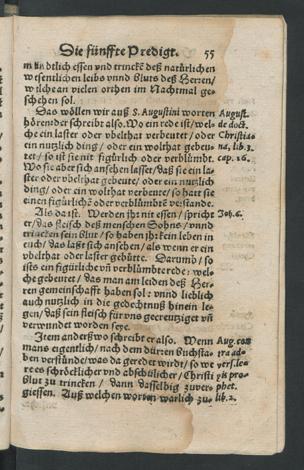 Die fünffte Predigt. 55
mündtlich essen vnd trincke̅ deß natürlichen
wesentlichen leibs vnnd bluts deß Herren/
welche an vielen orthen im Nachtmal ge-
schehen sol.
Das wöllen wir auß S. Augustini worten
hören der schreibt also. Wo ein rede ist/ wel-
che ein laster oder vbelthat verbeutet/ oder
ein nutzlich ding/ oder ein wolthat gebeu-
tet/ so ist sie nit figürlich oder verblümbt.
Wo sie aber sich ansehen lasset/ daß sie ein la-
ster oder vbelthat gebeute/ oder ein nutzlich
ding/ oder ein wolthat verbeute/ so hatt sie
einen figürliche̅ oder verblümbte̅ verstande.
Als da ist. Werden ihr nit essen/ spricht
er/ das fleisch deß menschen Sohns/ vnnd
trincken sein blut/ so haben ihr kein leben in
euch/ das laßt sich ansehen/ als wenn er ein
vbelthat oder laster gebütte. Darumb/ so
ists ein figürliche vn̅ verblümbte rede: wel-
che gebeutet/ das man am leiden deß Her-
ren gemeinschafft haben sol: vnnd lieblich
auch nutzlich in die gedechtnuß hinein le-
gen/ daß sein fleisch für vns gecreutziget vn̅
verwundet worden seye.
Item anderßwo schreibt er also. Wenn
mans eigentlich/ nach dem dürren buchsta-
ben verstünde/ was da geredet wirdt/ so we
re es schröcklicher vnd abschülicher/ Christi
blut zu trincken/ dann dasselbig zuver-
giessen. Auß welchen worten warlich zu-
August.
de doct.
Christia-
na, lib. 3.
cap. 16.
Joh. 6.
Aug. con
tra ad-
vers. le-
gis pro-
phet.
lib. 2.